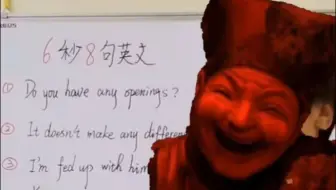 6秒8句英文
① Do you have any openings?
② It doesn't make any different
③ I'm fed up with him